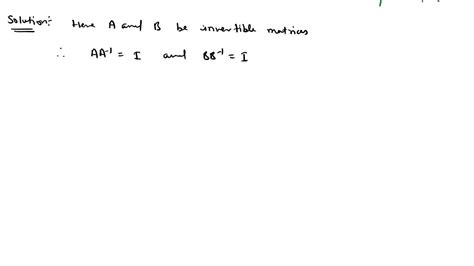 Solution:- Here A and B be invertible matrices
∴ AA⁻¹ = I and BB⁻¹ = I